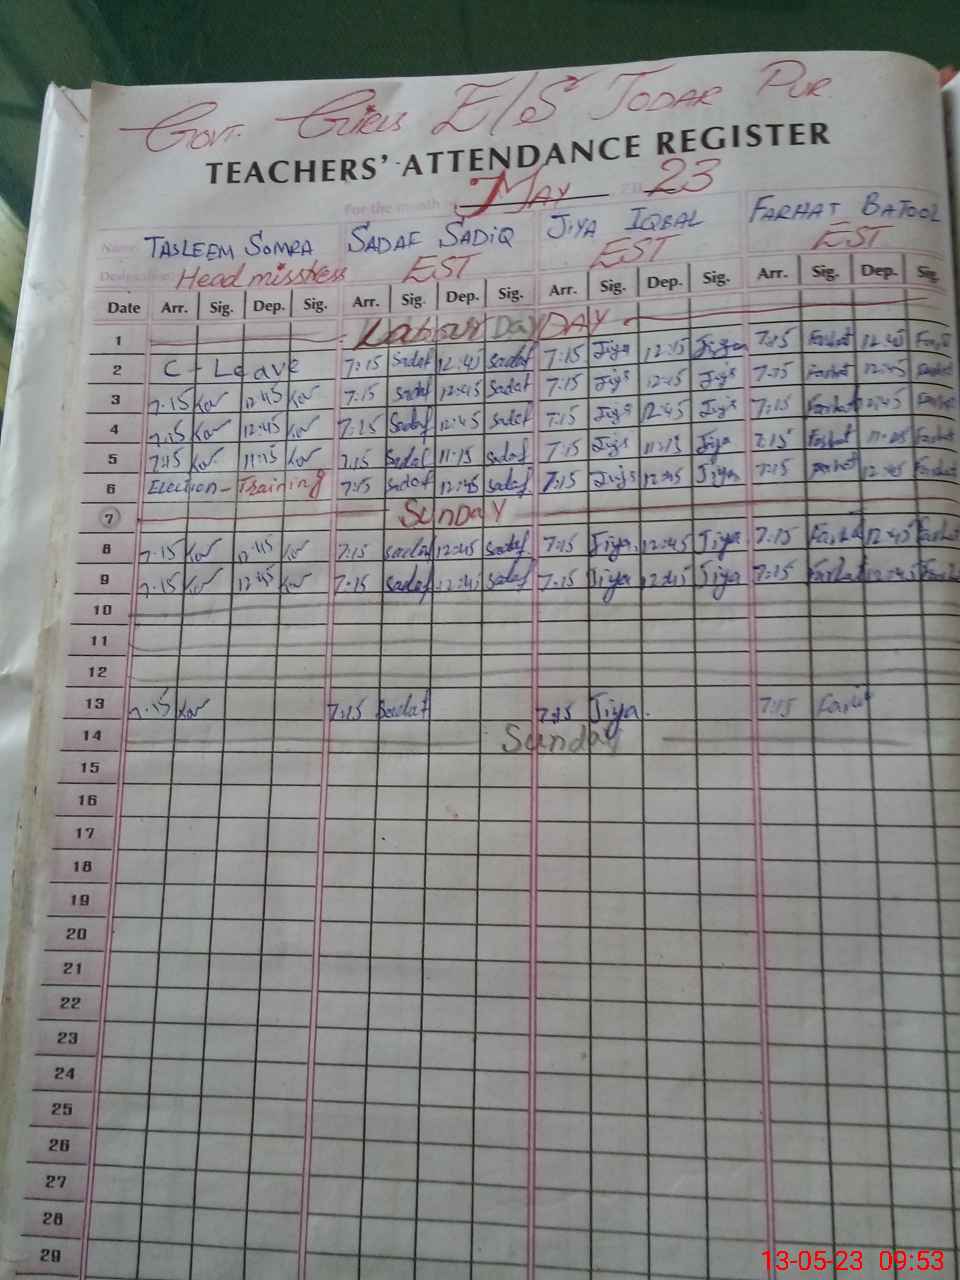 GOVT. GIRLS E/S JODAR PUR
TEACHERS' ATTENDANCE REGISTER
For the month MAY 23
Name TASLEEM SOMRA SADAF SADIQ JIYA IQBAL FARHAT BATOOL
Designation Head misstress EST EST EST
Date Arr. Sig. Dep. Sig. Arr. Sig. Dep. Sig. Arr. Sig. Dep. Sig. Arr. Sig. Dep. Sig.
1 Labour Day DAY
2 C - Leave 7:15 Sadaf 12:45 Sadaf 7:15 Jiya 12:15 Jiya 7:15 Farhat 12:45
3 7:15 12:45 7:15 Sadaf 12:45 Sadaf 7:15 Jiya 12:45 Jiya 7:15 Farhat 12:45 Farhat
4 7:15 12:45 7:15 Sadaf 12:45 Sadaf 7:15 Jiya 12:45 Jiya 7:15 Farhat 12:45 Farhat
5 7:15 11:15 7:15 Sadaf 11:15 Sadaf 7:15 Jiya 11:15 Jiya 7:15 Farhat Farhat
6 Election - Training 7:15 Sadaf 12:45 Sadaf 7:15 Jiya 12:45 Jiya 7:15 Farhat 12:45 Farhat
7 SUNDAY
8 7:15 12:45 7:15 Sadaf 12:45 Sadaf 7:15 Jiya 12:45 Jiya 7:15 Farhat 12:45 Farhat
9 7:15 12:45 7:15 Sadaf 12:45 Sadaf 7:15 Jiya 12:45 Jiya 7:15 Farhat 12:45
10
11
12
13 7:15 7:15 Sadaf 7:15 Jiya 7:15 Farhat
14 Sunday
15
16
17
18
19
20
21
22
23
24
25
26
27
28
29
13-05-23 09:53